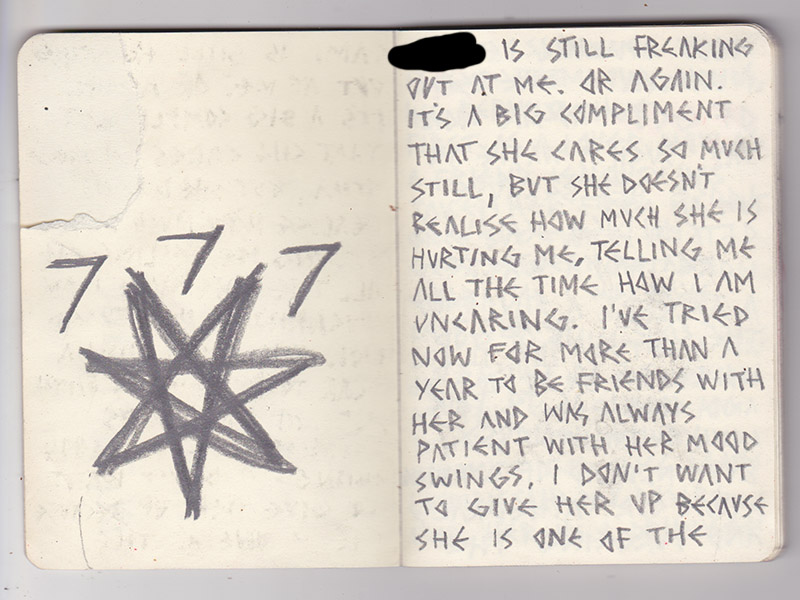 7 7 7
IS STILL FREAKING
OUT AT ME. OR AGAIN.
IT'S A BIG COMPLIMENT
THAT SHE CARES SO MUCH
STILL, BUT SHE DOESN'T
REALISE HOW MUCH SHE IS
HURTING ME, TELLING ME
ALL THE TIME HOW I AM
UNCARING. I'VE TRIED
NOW FOR MORE THAN A
YEAR TO BE FRIENDS WITH
HER AND WAS ALWAYS
PATIENT WITH HER MOOD
SWINGS. I DON'T WANT
TO GIVE HER UP BECAUSE
SHE IS ONE OF THE